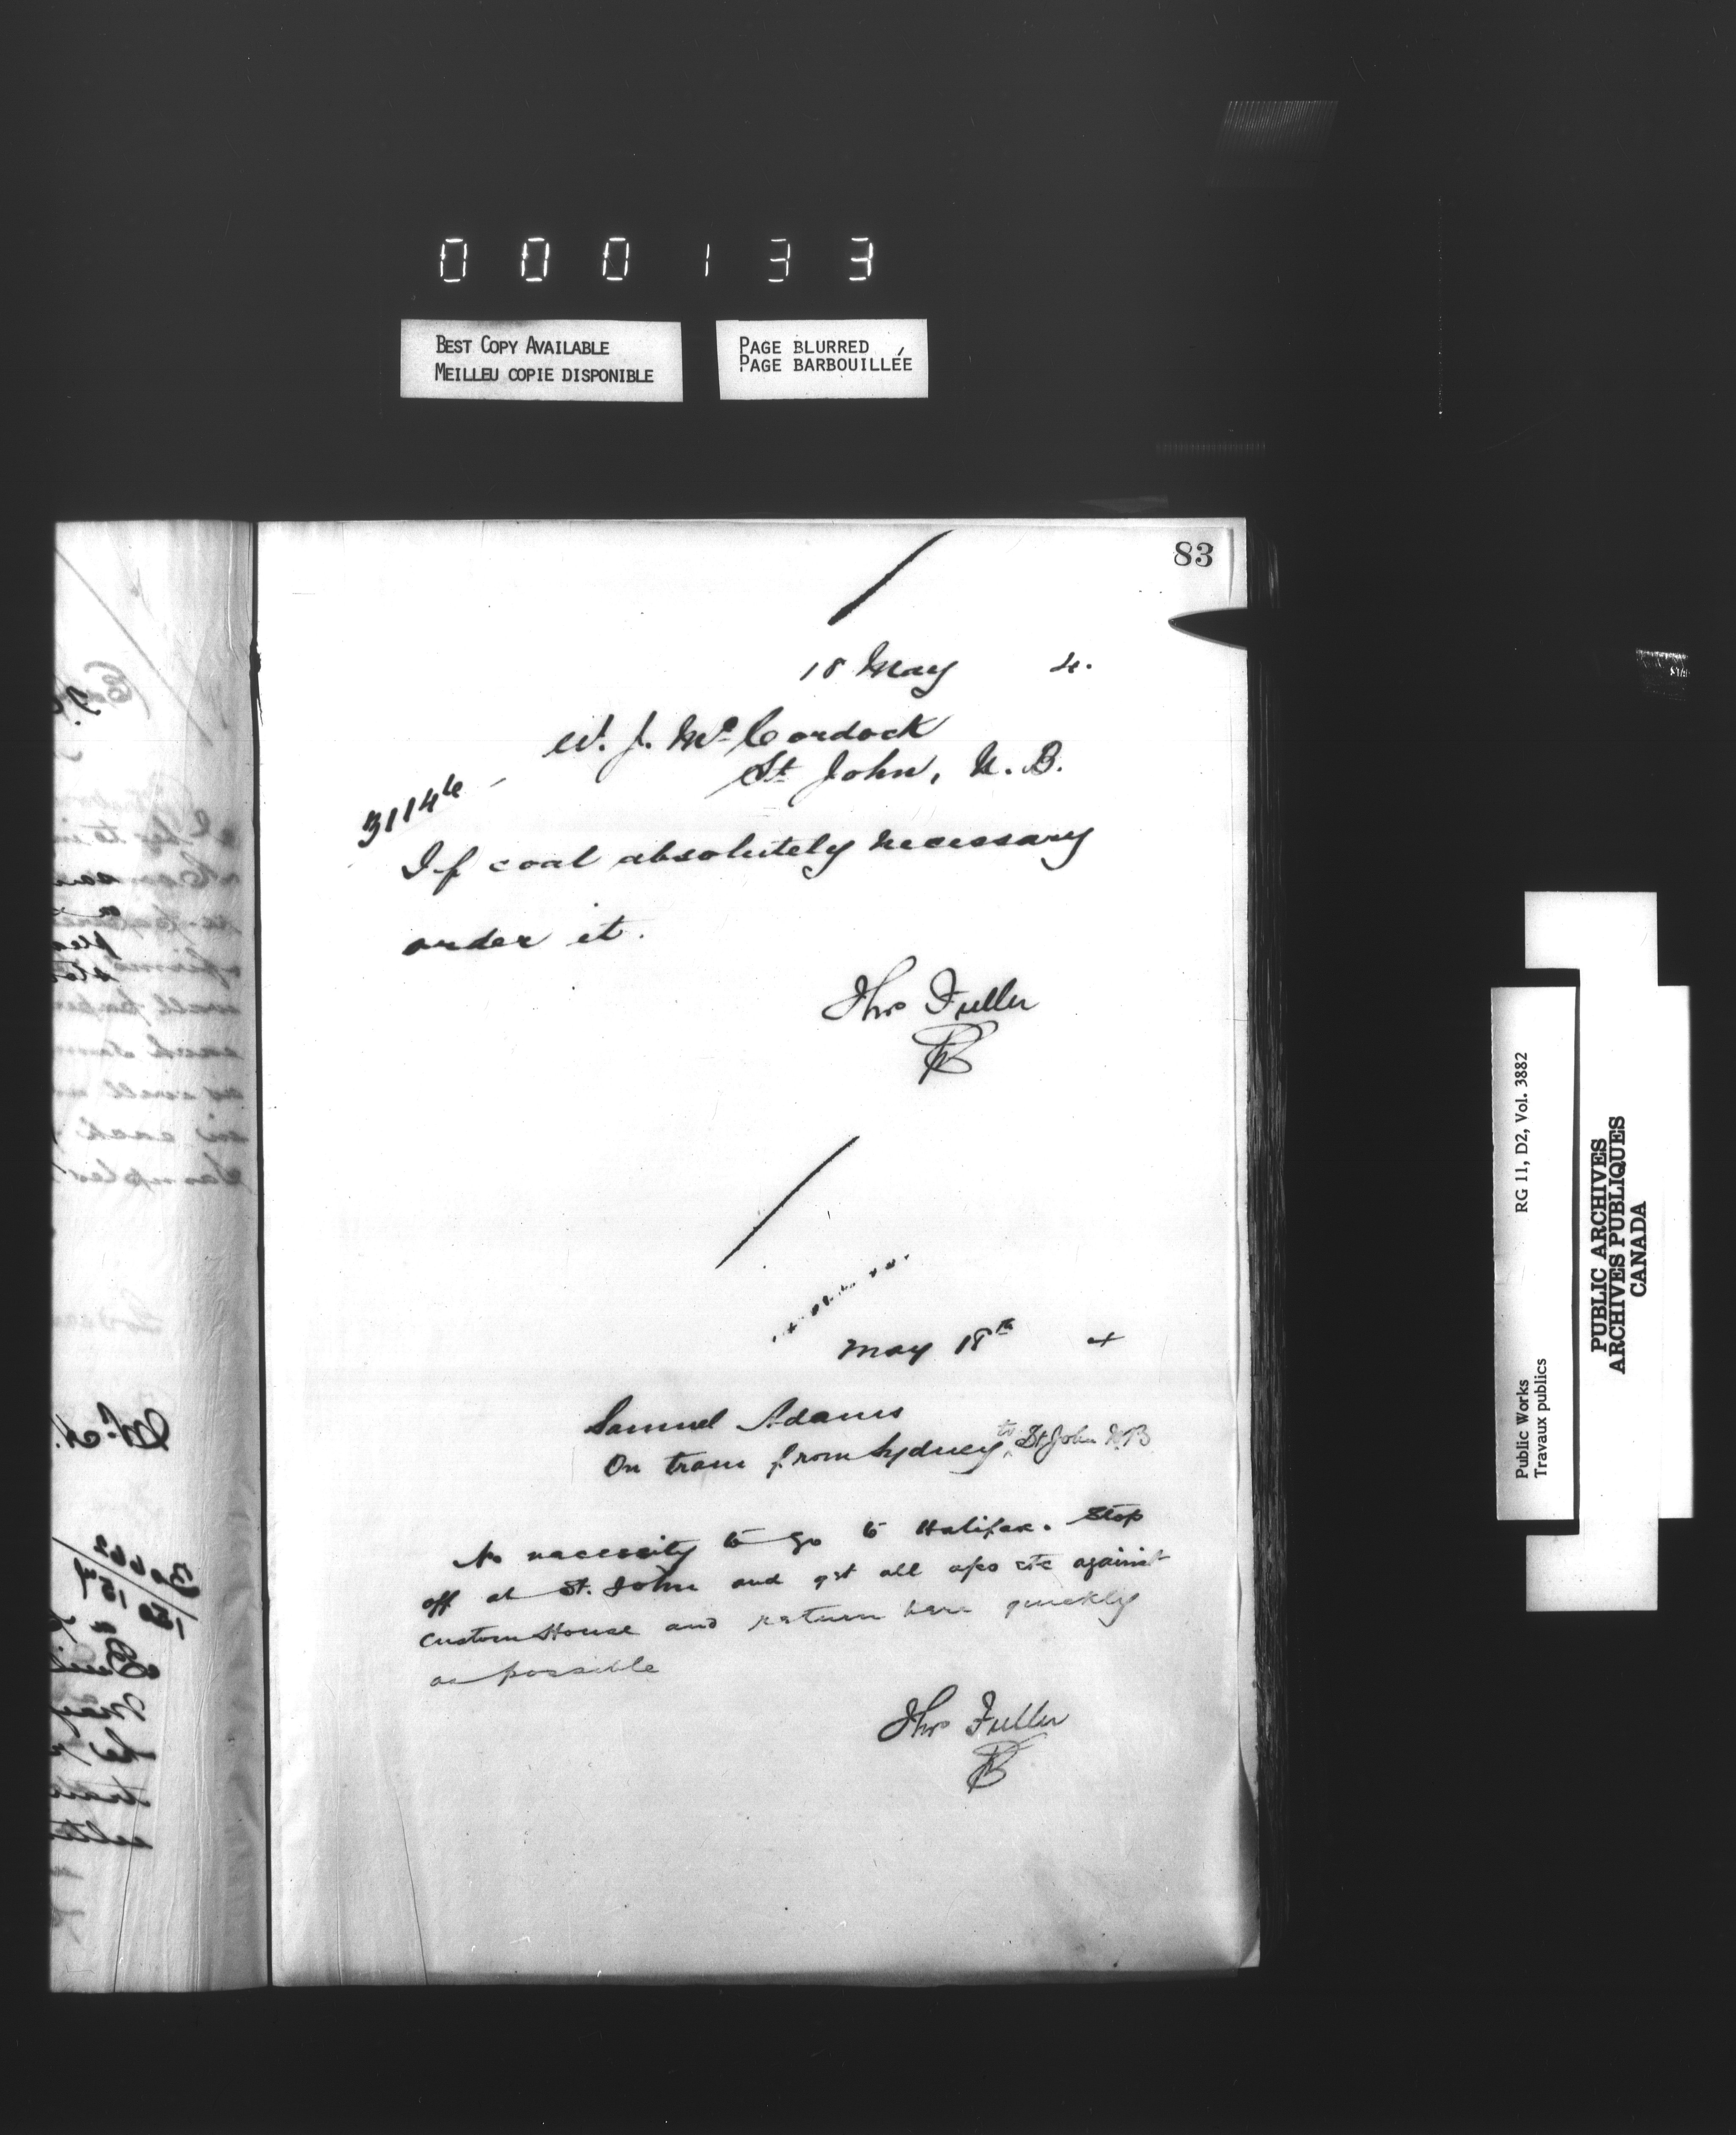 000133
BEST COPY AVAILABLE
MEILLEU COPIE DISPONIBLE
PAGE BLURRED
PAGE BARBOUILLÉE
83
18 May 4.
W. J. McCordock
St John, N. B.
31146
If coal absolutely necessary
order it.
Thos Fuller
May 18th 4
Samuel Adams
On train from Sydney to St John NB
No necessity to go to Halifax. Stop
off at St. John and get all a/cs etc against
Custom House and return here quickly
as possible
Thos Fuller
Public Works
Travaux publics
RG 11, D2, Vol. 3882
PUBLIC ARCHIVES
ARCHIVES PUBLIQUES
CANADA